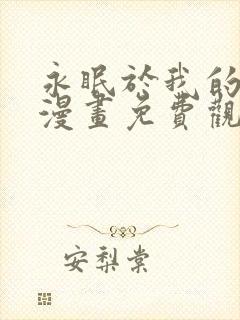 永眠於我的
漫畫免費觀
安梨棠